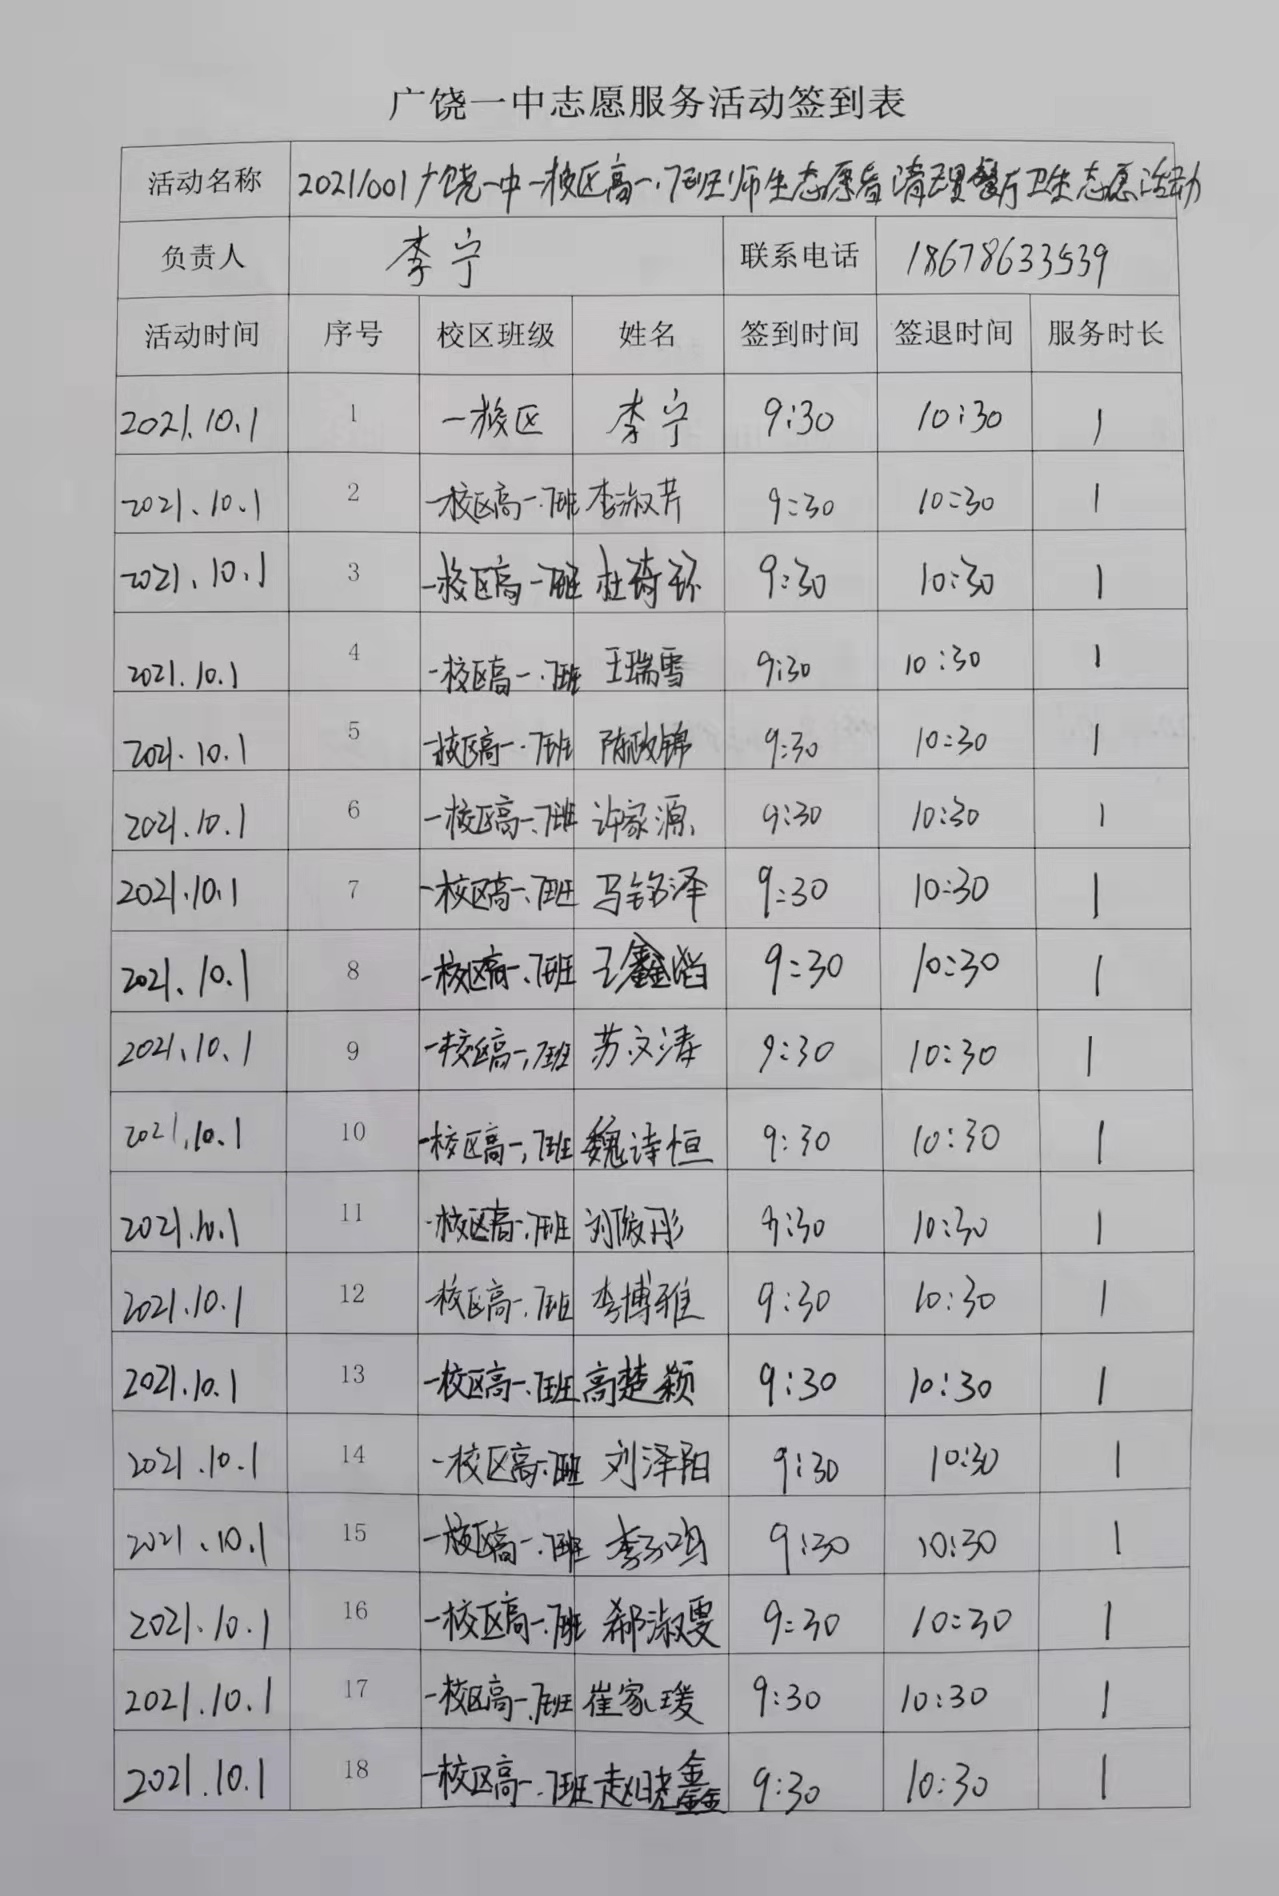 广饶一中志愿服务活动签到表
活动名称 20211001广饶一中一校区高一.7班师生志愿者清理餐厅卫生志愿活动
负责人 李宁 联系电话 18678633539
活动时间 序号 校区班级 姓名 签到时间 签退时间 服务时长
2021.10.1 1 一校区 李宁 9:30 10:30 1
2021.10.1 2 一校区高一.7班 李淑芹 9:30 10:30 1
2021.10.1 3 一校区高一7班 杜琦 9:30 10:30 1
2021.10.1 4 一校区高一.7班 王瑞雪 9:30 10:30 1
2021.10.1 5 一校区高一.7班 陈政锦 9:30 10:30 1
2021.10.1 6 一校区高一.7班 许家源 9:30 10:30 1
2021.10.1 7 一校区高一.7班 马铭泽 9:30 10:30 1
2021.10.1 8 一校区高一.7班 王鑫 9:30 10:30 1
2021.10.1 9 一校区高一.7班 苏文涛 9:30 10:30 1
2021.10.1 10 一校区高一.7班 魏诗恒 9:30 10:30 1
2021.10.1 11 一校区高一.7班 刘俊彤 9:30 10:30 1
2021.10.1 12 一校区高一.7班 李博雅 9:30 10:30 1
2021.10.1 13 一校区高一.7班 高楚颖 9:30 10:30 1
2021.10.1 14 一校区高一.7班 刘泽阳 9:30 10:30 1
2021.10.1 15 一校区高一.7班 李鸣 9:30 10:30 1
2021.10.1 16 一校区高一.7班 郗淑雯 9:30 10:30 1
2021.10.1 17 一校区高一.7班 崔家瑗 9:30 10:30 1
2021.10.1 18 一校区高一.7班 赵晓鑫 9:30 10:30 1